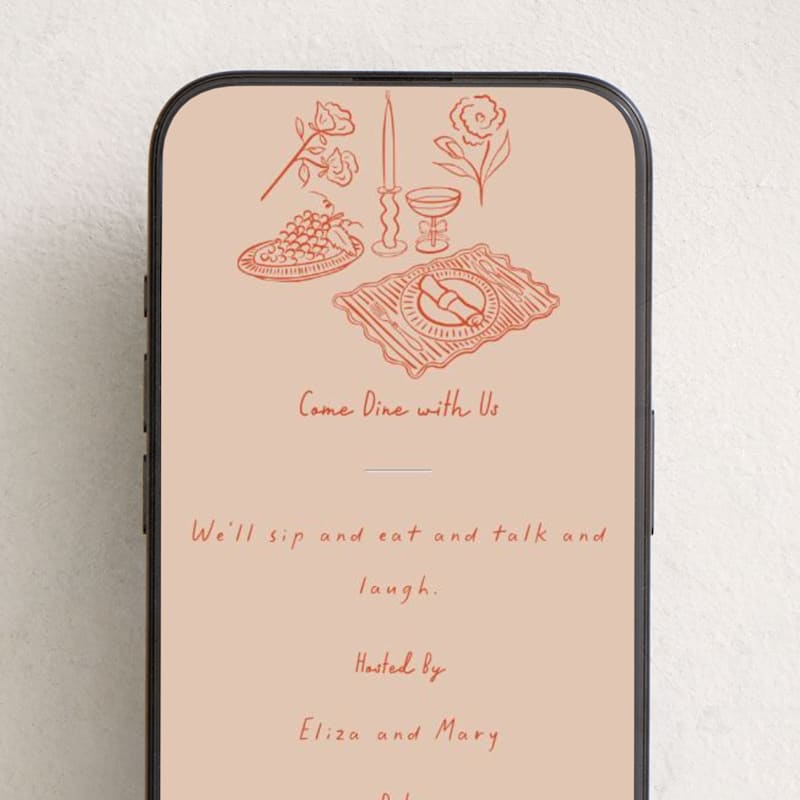 Come Dine with Us
We'll sip and eat and talk and
laugh.
Hosted By
Eliza and Mary